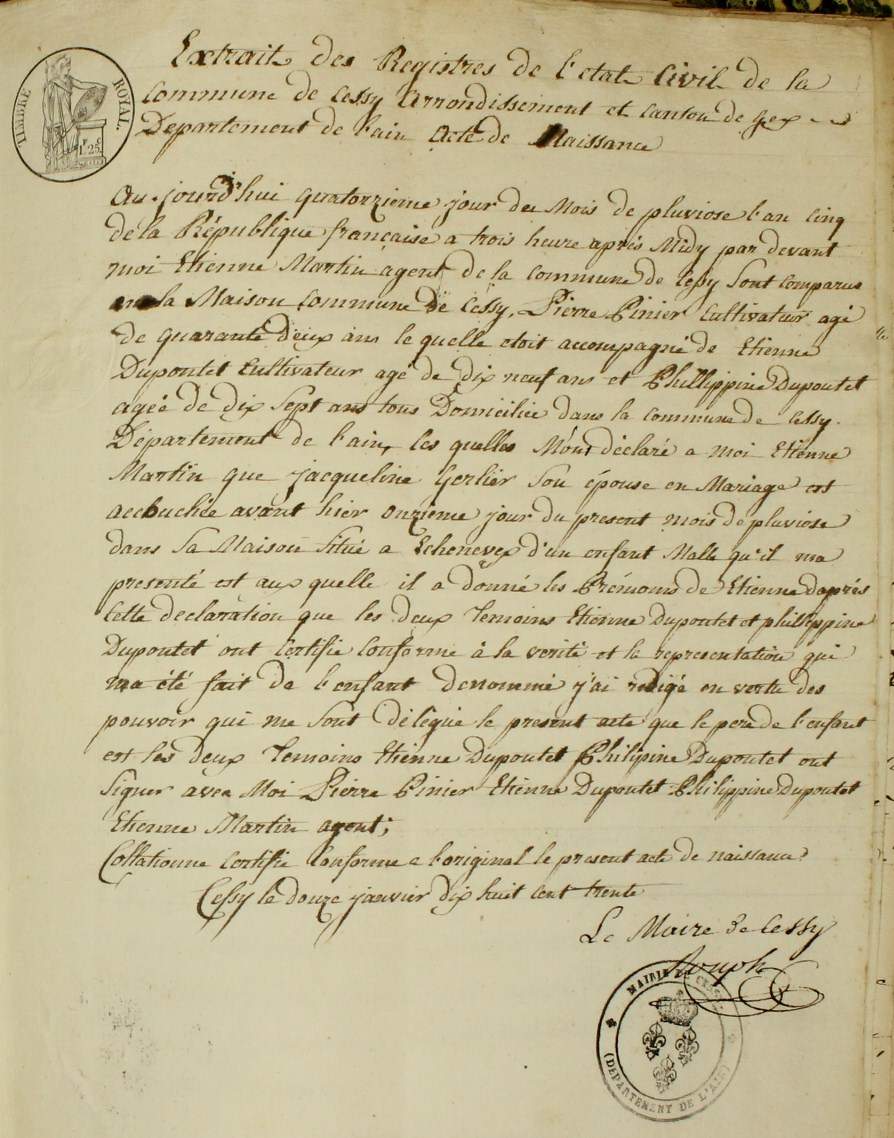 TIMBRE ROYAL.
1.25
Extrait des Registres de l'etat Civil de la
Commune de Cessy Arrondissement et canton de Gex
Departement de l'ain Acte de Naissance
Au-jourd'hui quatorzieme jour de Mois de pluviose l'an cinq
de la République francaise a trois heure après Midy par devant
moi Etienne Martin agent de la commune de Cessy Sont Comparus
en la Maison commune de Cessy, Pierre Pinier Cultivateur agé
de quarante deux ans le quelle etoit accompagné de Etienne
Dupontet Cultivateur agé de dix neuf ans et Phillippine Dupontet
agéé de dix Sept ans tous Domicilié dans la commune de Cessy.
Département de l'ain, les quelles M'ont déclaré a moi Etienne
Martin que jacqueline Gerlier Son épouse en Mariage est
accouchée avant hier onzieme jour du present mois de pluviose
dans Sa Maison Situé a Echenevex d'un enfant Malle qu'il ma
presenté est aux quelle il a donné les Prénoms de Etienne daprés
Cette declaration que les deux Temoins Etienne Dupontet et phillippine
Dupontet ont Certifié Conforme à la verité et la representation qui
ma été fait de l'enfant denommé j'ai redigé en vertu des
pouvoir qui me Sont délégué le present acte que le pere de l'enfant
est les deux Temoins Etienne Dupontet Philipine Dupontet ont
Signer avec Moi Pierre Pinier Etienne Dupontet Philippine Dupontet
Etienne Martin agent;
Collationne Certifié Conforme a l'original le present acte de naissance
Cessy le douze janvier dix huit cent trente
Le Maire de Cessy
MAIRIE DE CESSY
(DEPARTEMENT DE L'AIN)